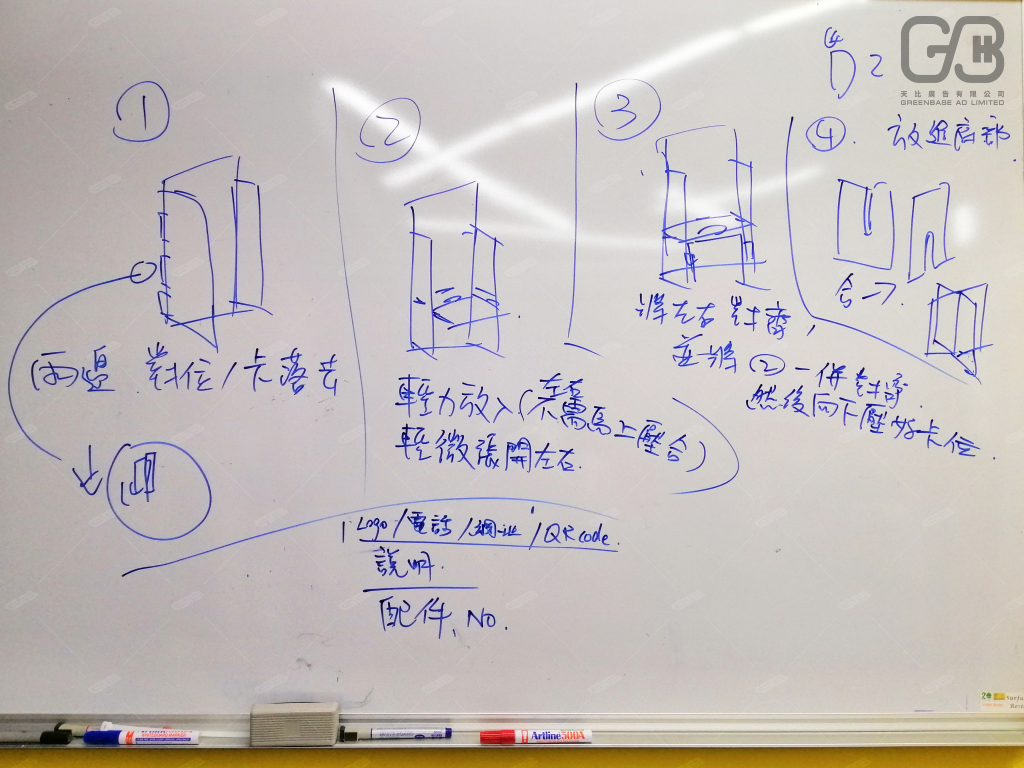 GBH
天比廣告有限公司
GREENBASE AD LIMITED
④
2
①
兩邊 對位/卡落去
②
輕力放入(左右不需馬上壓合)
輕微張開左右.
③
將左右對齊,
並將②一併對齊
然後向下壓好卡位.
④. 放進底部.
合一
Logo/電話/網址/QR code.
說明.
配件、No.
Artline 500A